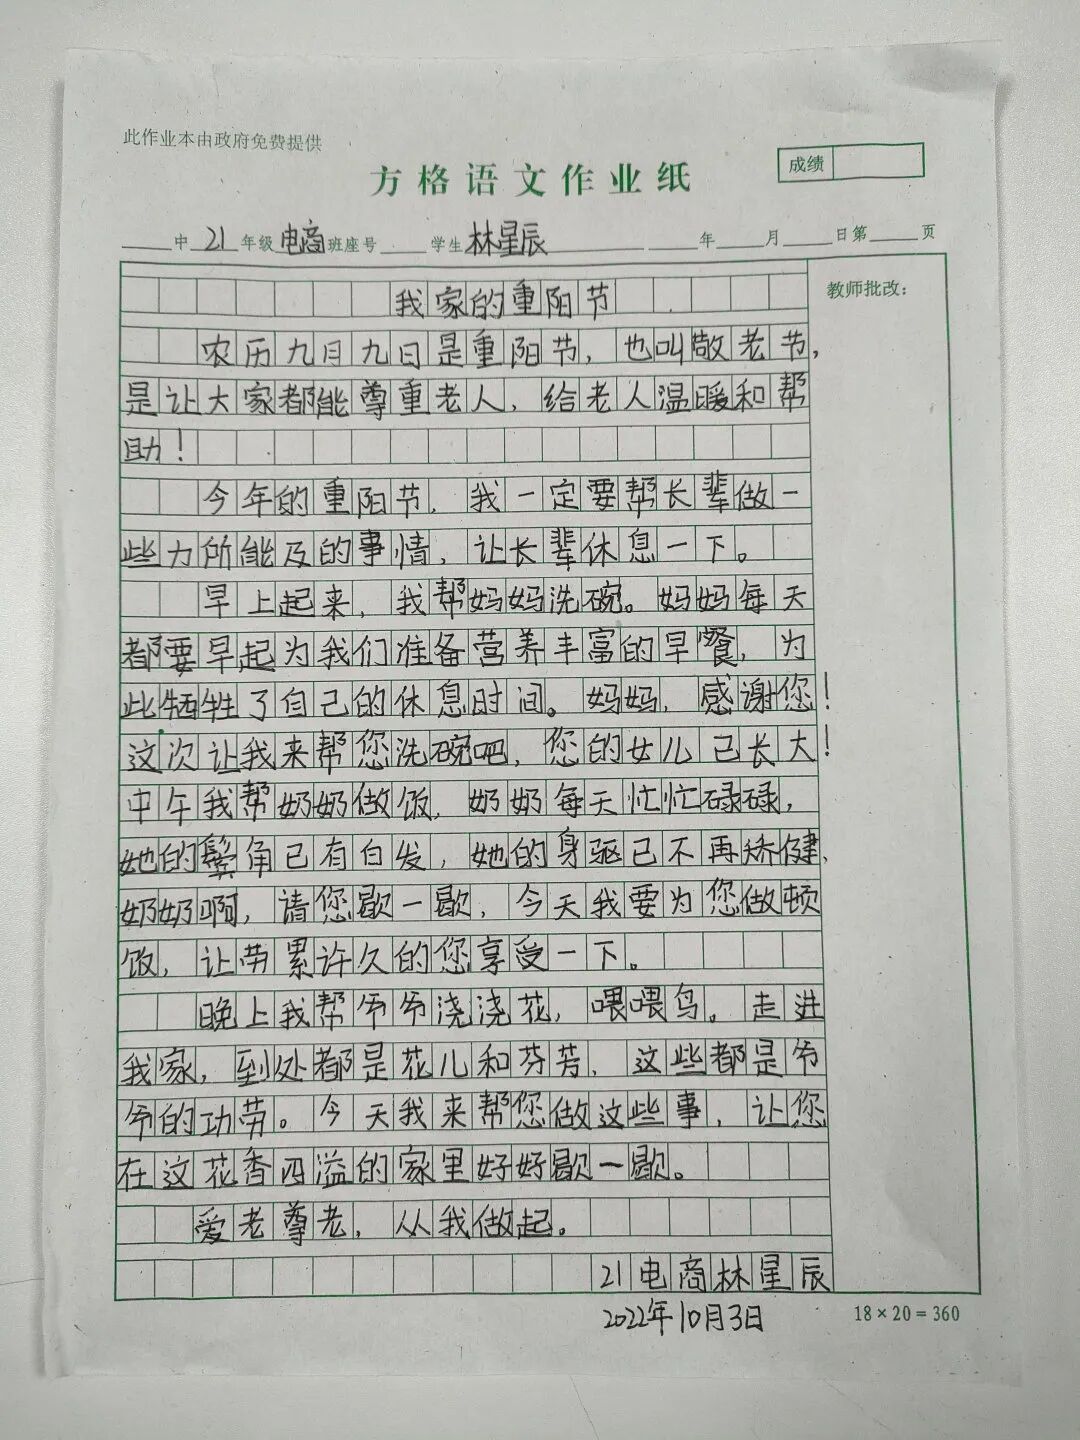 此作业本由政府免费提供
方格语文作业纸
成绩
中 21 年级 电商 班座号 学生 林星辰 年 月 日第 页
教师批改：
我家的重阳节
农历九月九日是重阳节，也叫敬老节，
是让大家都能尊重老人，给老人温暖和帮
助！
今年的重阳节，我一定要帮长辈做一
些力所能及的事情，让长辈休息一下。
早上起来，我帮妈妈洗碗。妈妈每天
都要早起为我们准备营养丰富的早餐，为
此牺牲了自己的休息时间。妈妈，感谢您！
这次让我来帮您洗碗吧，您的女儿已长大！
中午我帮奶奶做饭，奶奶每天忙忙碌碌，
她的鬓角已有白发，她的身躯已不再矫健，
奶奶啊，请您歇一歇，今天我要为您做顿
饭，让劳累许久的您享受一下。
晚上我帮爷爷浇浇花，喂喂鸟。走进
我家，到处都是花儿和芬芳，这些都是爷
爷的功劳。今天我来帮您做这些事，让您
在这花香四溢的家里好好歇一歇。
爱老尊老，从我做起。
21电商林星辰
2022年10月3日
18×20=360